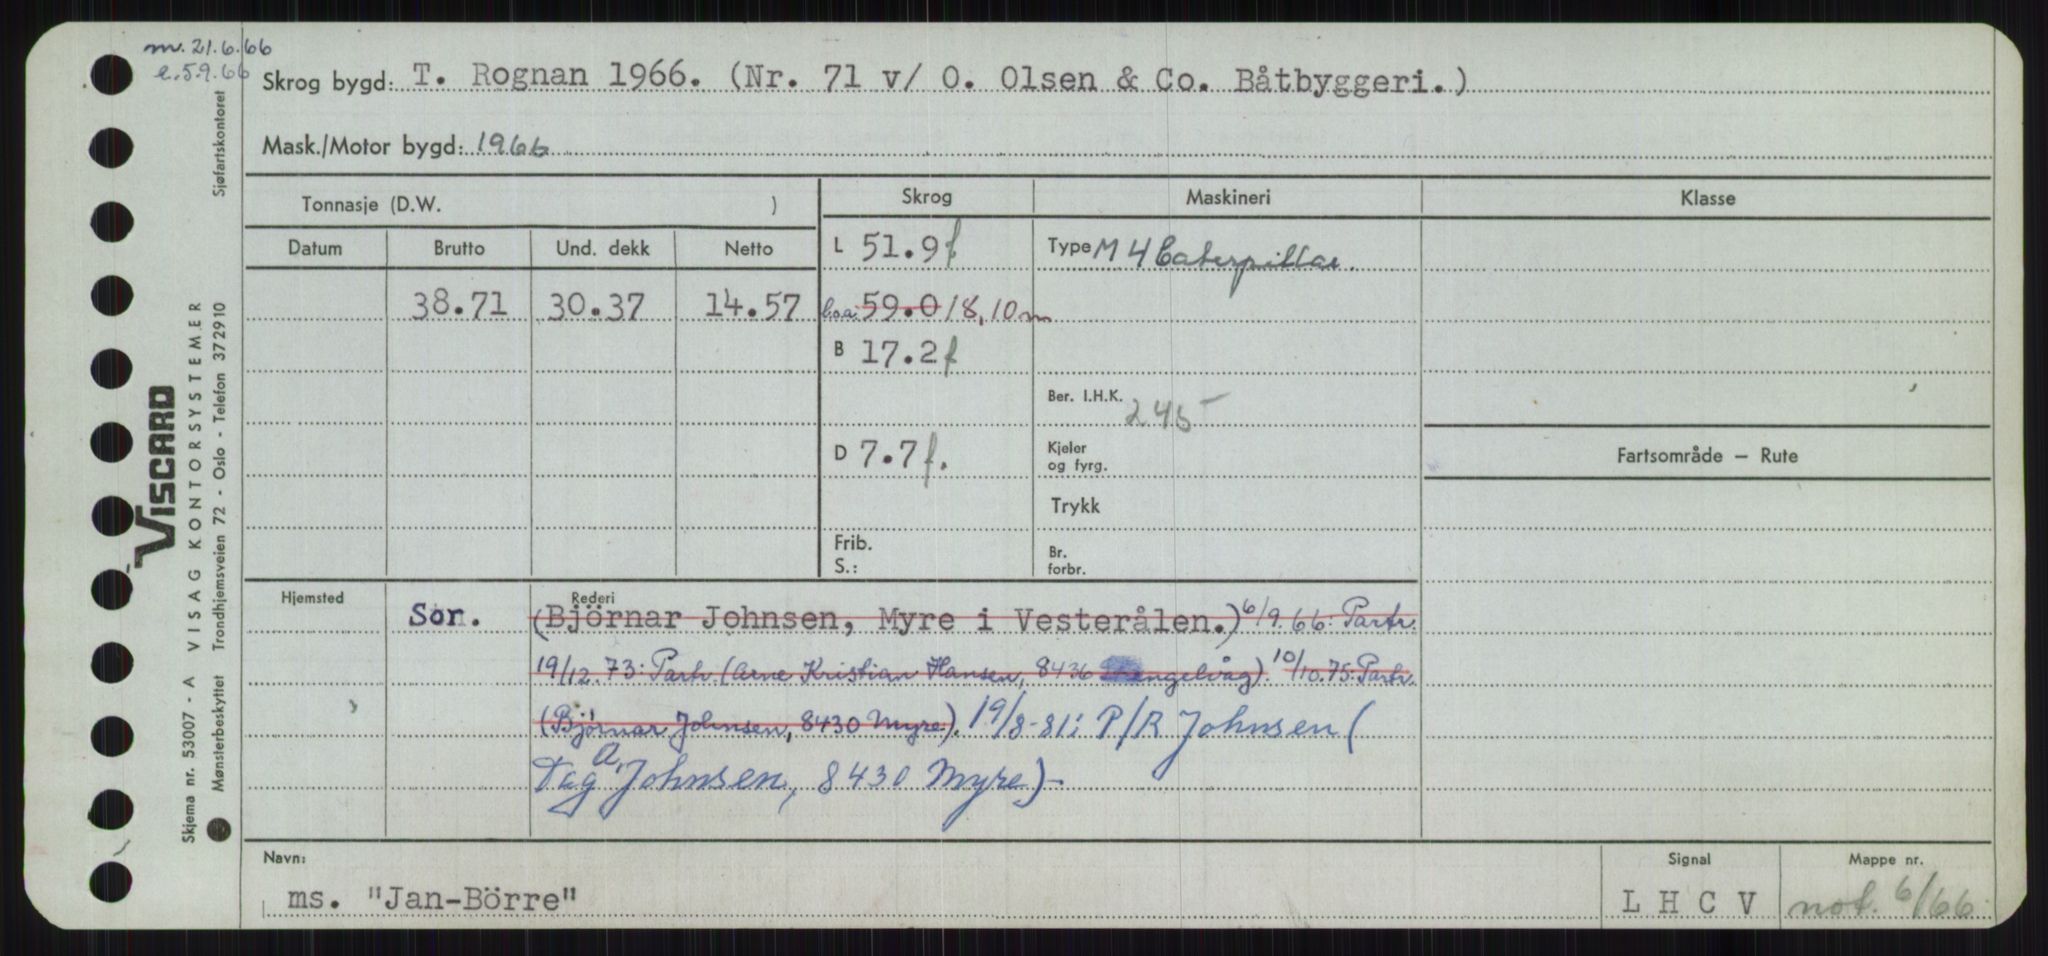 m. 21.6.66
e. 5.9.66
Skrog bygd: T. Rognan 1966. (Nr. 71 v/ O. Olsen & Co. Båtbyggeri.)
Mask./Motor bygd: 1966
Sjøfartskontoret
Tonnasje (D.W. )
Skrog
Maskineri
Klasse
Datum Brutto Und. dekk Netto
L 51.9 f
Type M 4 Caterpillar.
38.71 30.37 14.57
l.o.a. 59.0 18,10 m
B 17.2 f
Ber. I.H.K. 245
D 7.7 f.
Kjeler
og fyrg.
Fartsområde – Rute
Trykk
Frib.
S.:
Br.
forbr.
Hjemsted
Rederi
Sor. (Björnar Johnsen, Myre i Vesterålen.) 6/9.66: Partr.
19/12.73: Partr. (Arne Kristian Hansen, 8436 engelvåg). 10/10.75: Partr.
(Björnar Johnsen, 8430 Myre). 19/8-81: P/R Johnsen (
Dag A. Johnsen, 8430 Myre)-
Navn:
ms. "Jan-Börre"
Signal
L H C V
Mappe nr.
not. 6/66
VISCARD
VISAG KONTORSYSTEMER
Skjema nr. 53007 - A
Mønsterbeskyttet Trondhjemsveien 72 - Oslo - Telefon 372910